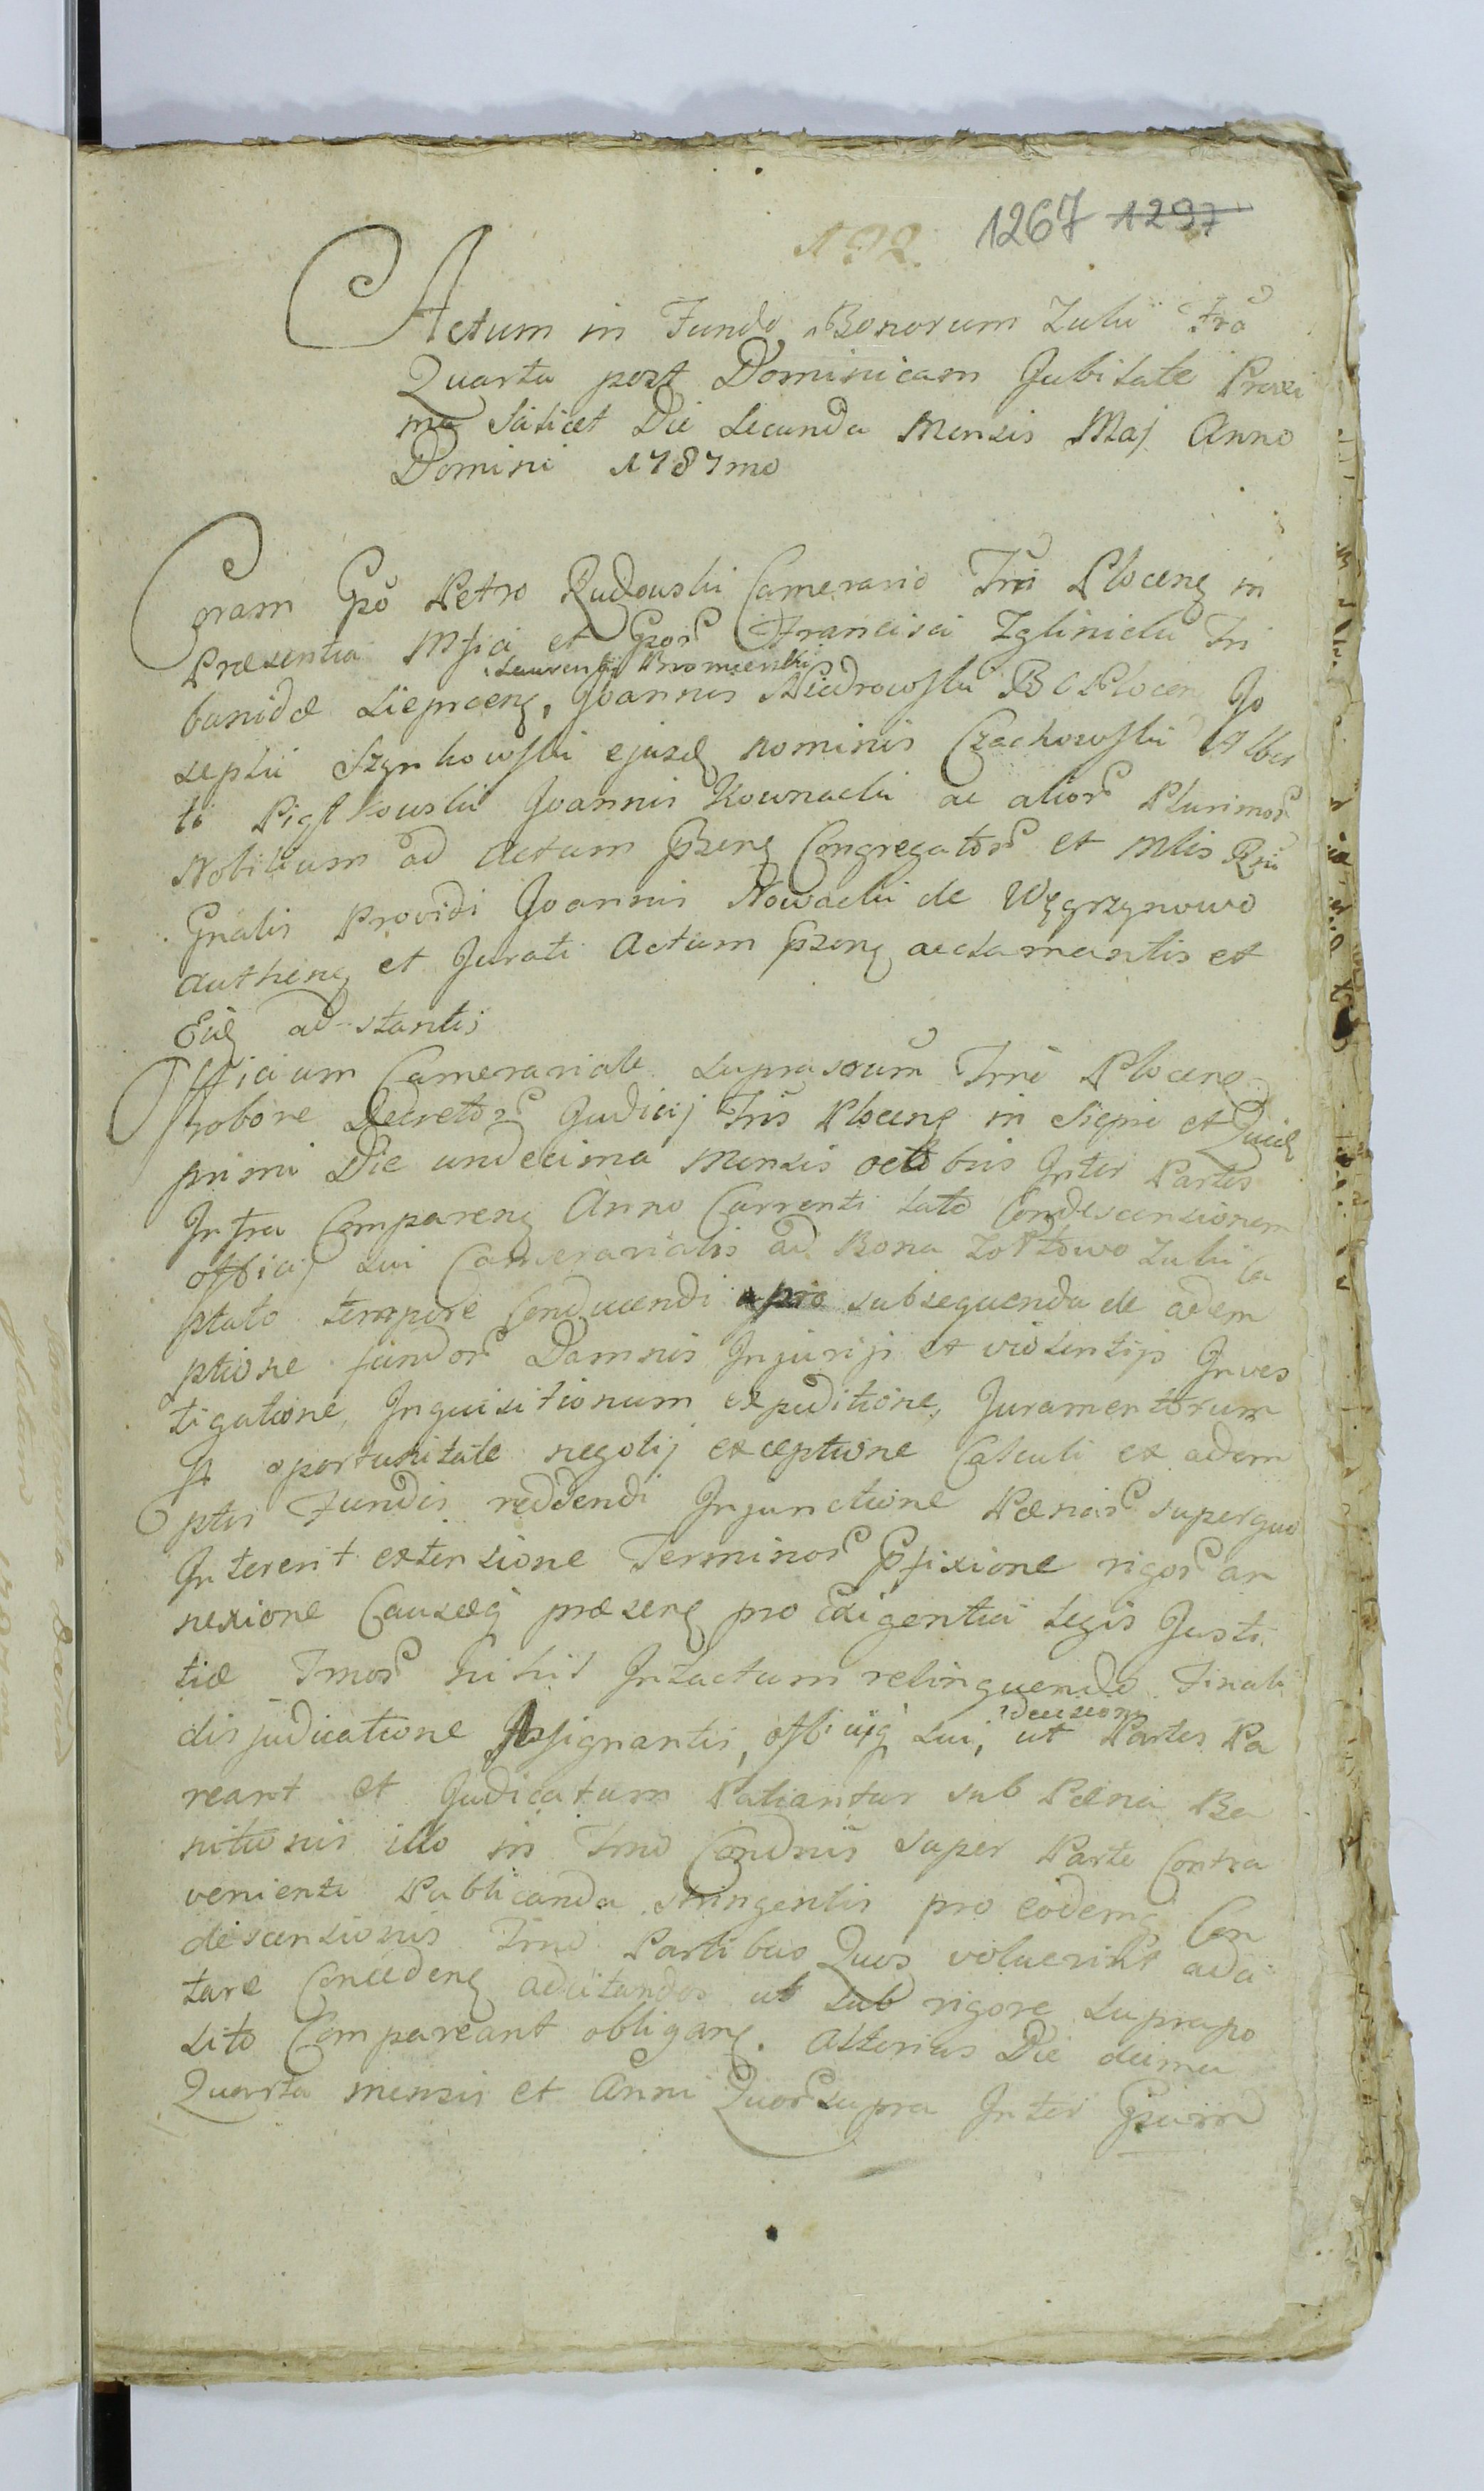 192. 1267 1297
Actum in Fundo Bonorum Zulii Fra
Quarta post Dominicam Jubilate Proxi
ma Scilicet Die Secunda Mensis Maj Anno
Domini 1787mo
Coram Gso Petro Rudowski Camerario Trri Plocens in
Præsentia Mfici et Gsor Francisci Zglinicki Tri
Laurentii Bromierski
bunidæ Sieprcens, Joannis Niedrowski B C Plocen Jo
sephi Szynkowski ejusd nominis Czachowski Alber
ti Pigłowski Joannis Kownacki ac alior Plurimor
Nobilium ad Actum Pszens Congregator et Mlis Rni
Gnalis Providi Joannis Nowacki de Węgrzynowo
Authens et Jurati Actum Pszens acclamantis et
Eid ad stantis
Officium Camerariale suprascrum Trri Plocens
robore Decretor Judicij Tris Plocens in Siepre et Quid
primi Die undecima Mensis octobris Inter Partes
Infra Comparens Anno Currenti lato Condescensionem
officij sui Camerarialis ad Bona Zoltowo Zulii ca
ptato tempore Conducendi pro subsequenda de adem
ptione fundor Damnis Injurijs et violentijs Inves
tigatione, Inquisitionum expeditione, Juramentorum
In oportunitate negotij exceptione Calculi ex adem
ptis Fundis reddendi Injunctione Pænar superquo
Intererit extensione Terminor Pfixione rigor an
nexione Causæq præsens pro Exigentia legis Justi
tiæ Tmor nihil Intactum relinquendo Finali
disjudicatione Assignantis, officijq sui, ut Partes Pa
decisioni
reant et Judicatum Patiantur sub Pæna Ba
nitionis illo in Tmo Condnis super Parte Contra
venienti Publicanda stringentis pro eodemq Con
descensionis Tmo Partibus Quos voluerint adci
tare Concedens adcitandos ut sub rigore suprapo
sito Compareant obligans. Alterius Die decima
Quarta mensis et Anni Quor supra Inter Gsum